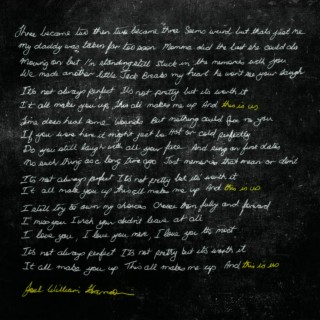 Three became two then two became three Seems weird but thats just me
My daddy was taken far too soon Momma did the best she could do
Moving on but I'm standing still Stuck in the memories with you
We made another little Jack Breaks my heart he won't see your laugh
It's not always perfect It's not pretty but its worth it
It all make you up This all makes me up And this is us
Time does heal some wounds But nothing could fix no you
If you were here it might just be Hot or cold perfectly
Do you still laugh with all your face And sing on first dates
No such thing as a long time ago Just memories that mean or don't
It's not always perfect It's not pretty but its worth it
It all make you up This all makes me up And this is us
I still try to own my choices Chose them fully and forward
I miss you I wish you didn't leave at all
I love you, I love you more I love you the most
It's not always perfect It's not pretty but its worth it
It all make you up This all makes me up And this is us
William